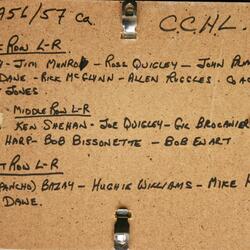 956/57 ca. C.C.H.L.
Row L-R
JIM MUNRO - ROSS QUIGLEY - JOHN
DANE - RICK MCGLYNN - ALLEN RIGGLES. COA
JONES
MIDDLE ROW L-R
KEN SHEHAN - JOE QUIGLEY - GIL BROCANIER
HARP - BOB BISSONETTE - BOB EWART
T ROW L-R
PANCHO) BAZAY - HUGHIE WILLIAMS - MIKE
DANE.